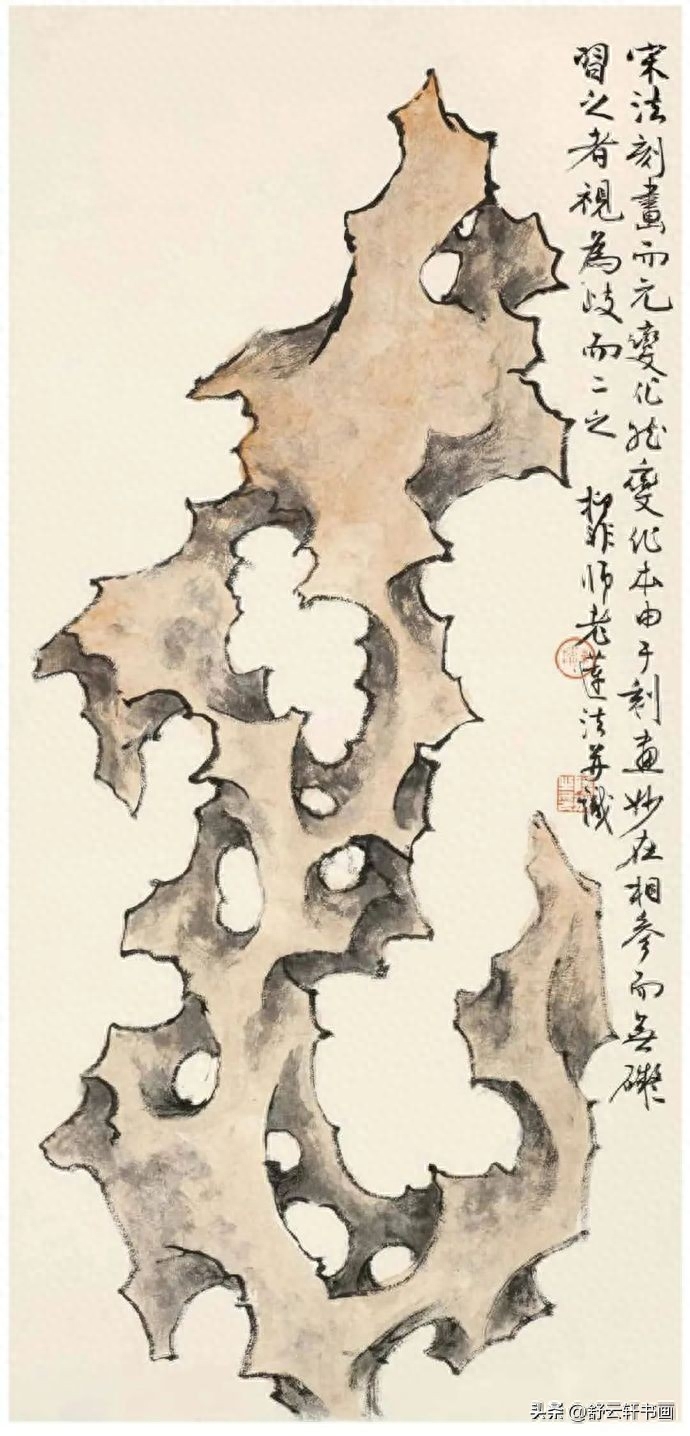 宋法刻畫而元變化然變化本由于刻畫妙在相參而無礙
習之者視為歧而二之 抑非師老蓮法并識
头条 @舒云轩书画